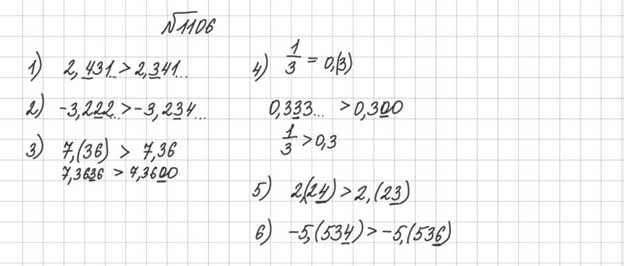 №1106
1) 2,431... > 2,341...
2) -3,222... > -3,234...
3) 7,(36) > 7,36
7,3636 > 7,3600
4) 1/3 = 0,(3)
0,333... > 0,300
1/3 > 0,3
5) 2(24) > 2,(23)
6) -5,(534) > -5,(536)